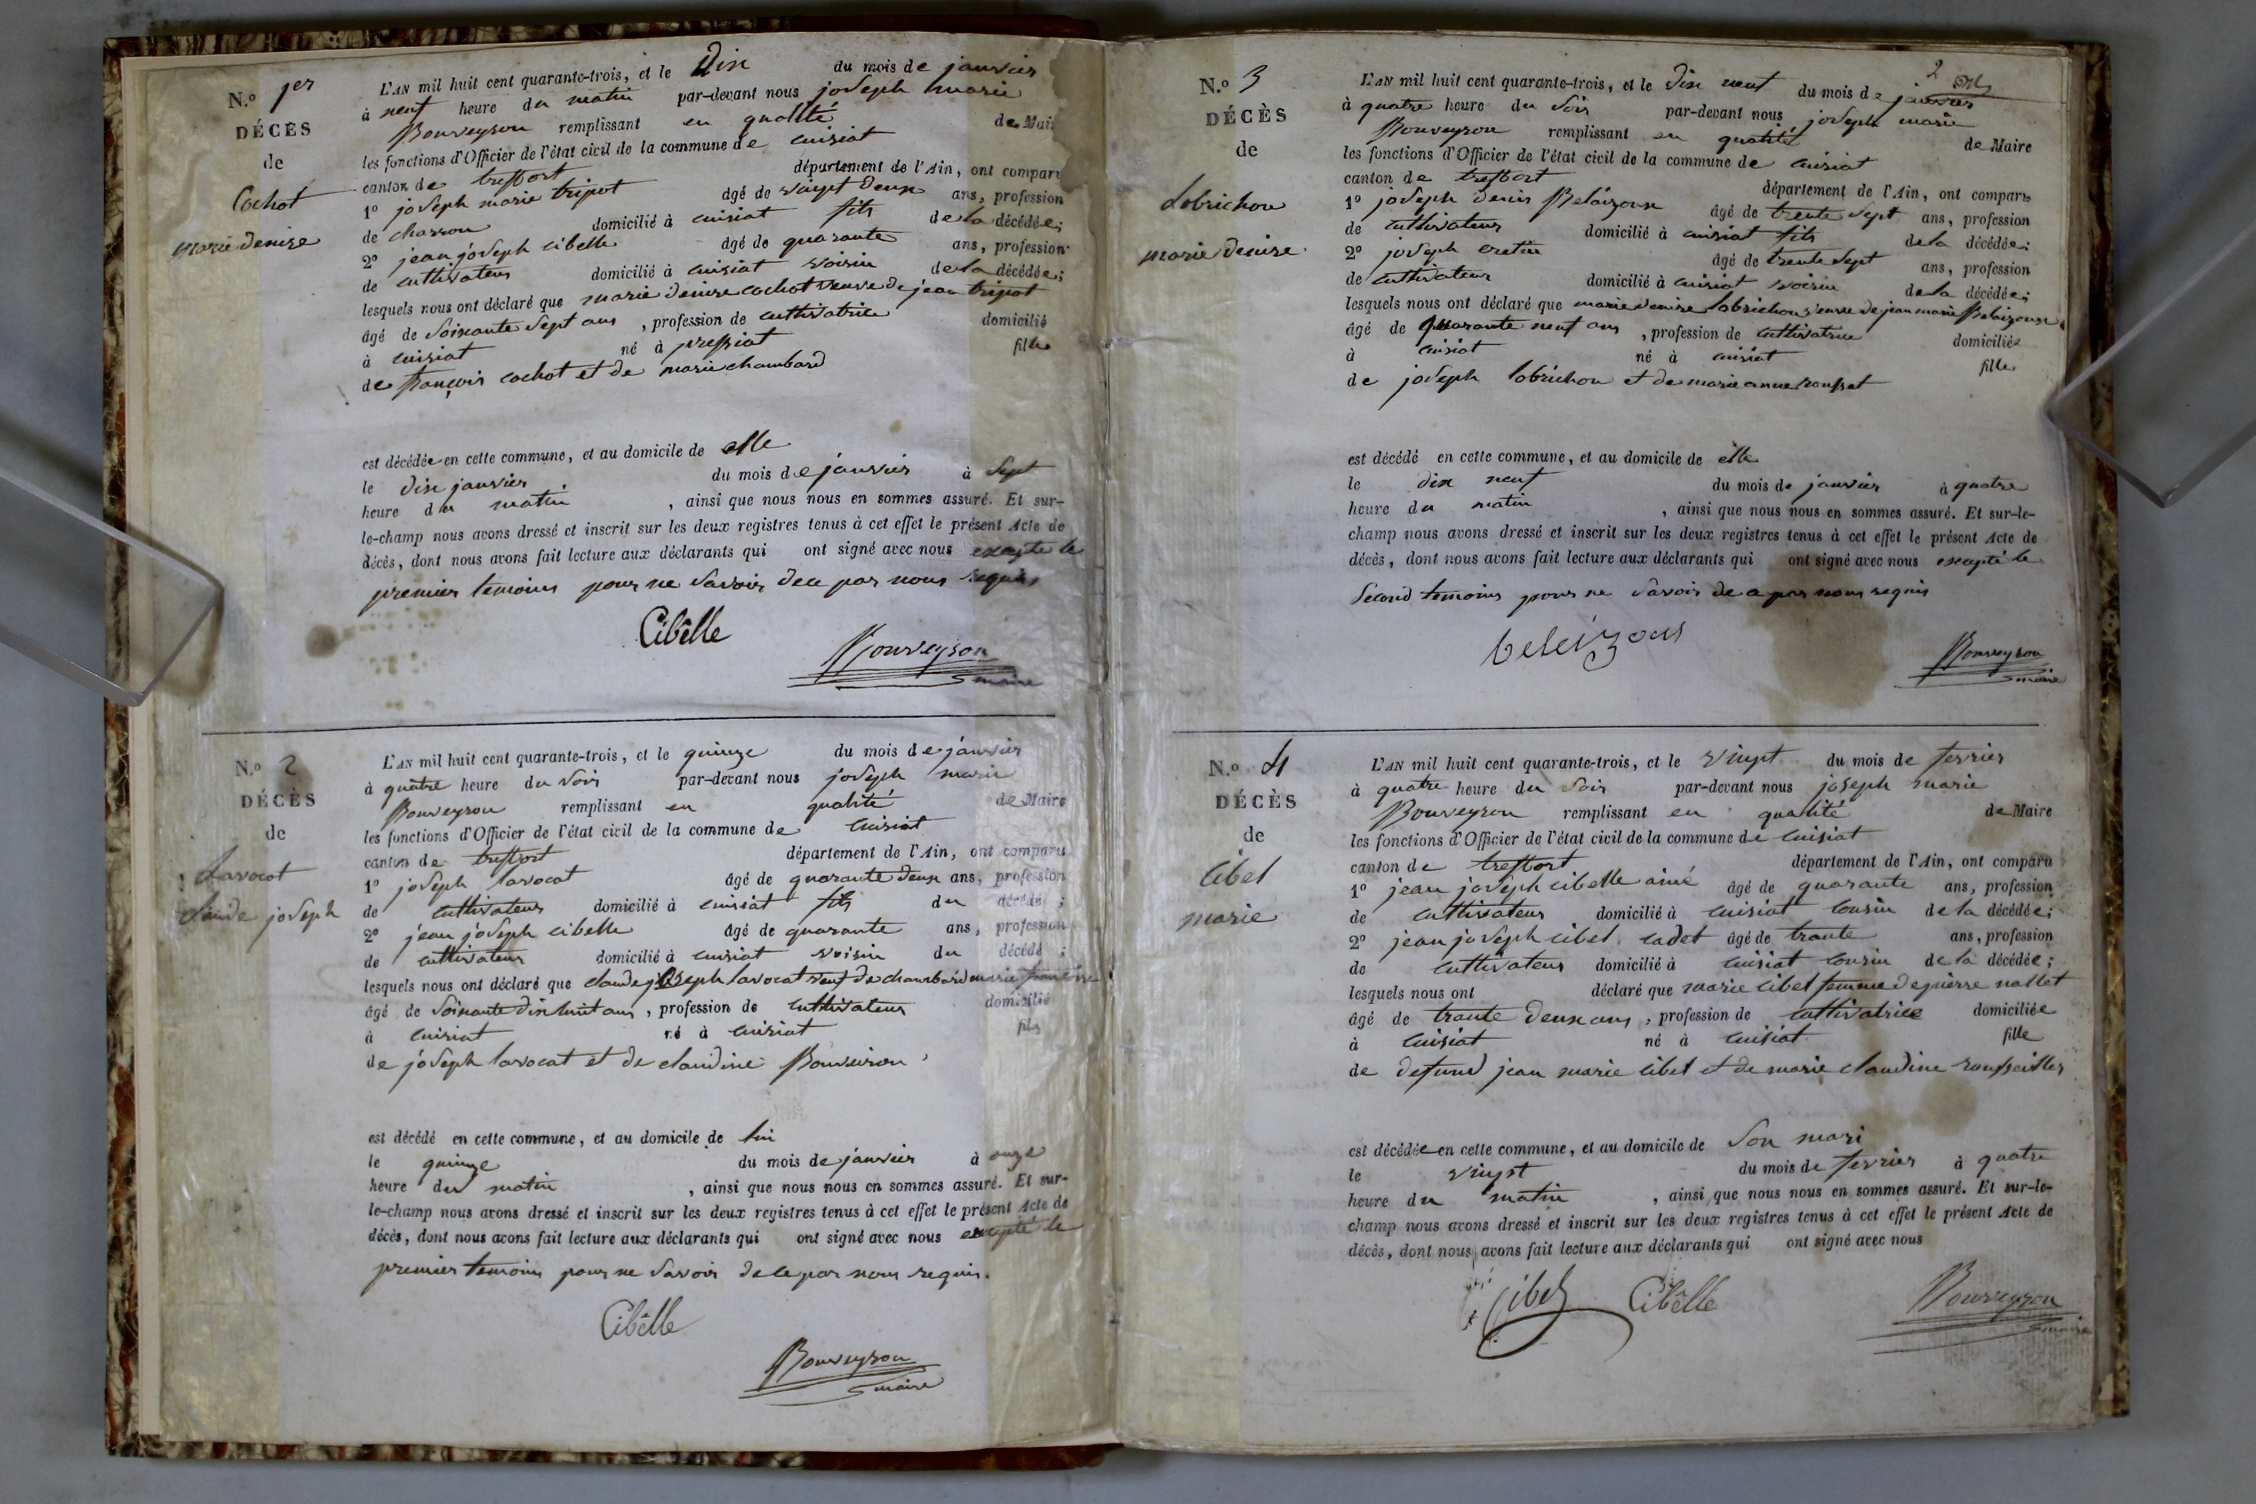 N.o 1er
DÉCÈS
de
Cochot
marie denise
L'AN mil huit cent quarante-trois, et le Dix du mois de janvier
à neuf heure du matin par-devant nous joseph marie
Bouveyron remplissant en qualité de Maire
les fonctions d'Officier de l'état civil de la commune de cuisiat
canton de treffort département de l'Ain, ont comparu
1º joseph marie tripot âgé de vingt deux ans, profession
de charron domicilié à cuisiat fils de la décédée;
2º jean joseph cibelle âgé de quarante ans, profession
de cultivateur domicilié à cuisiat voisin de la décédée;
lesquels nous ont déclaré que marie denise cochot veuve de jean tripot
âgé de soixante sept ans, profession de cultivatrice domicilié
à cuisiat né à pressiat fille
de françois cochot et de marie chambard
est décédée en cette commune, et au domicile de elle
le dix janvier du mois de janvier à sept
heure du matin, ainsi que nous nous en sommes assuré. Et sur-
le-champ nous avons dressé et inscrit sur les deux registres tenus à cet effet le présent Acte de
décès, dont nous avons fait lecture aux déclarants qui ont signé avec nous excepté le
premier temoins pour ne savoir de ce par nous requis
Cibêlle
Bouveyron
maire
N.o 2
DÉCÈS
de
Lavocat
claude joseph
L'AN mil huit cent quarante-trois, et le quinze du mois de janvier
à quatre heure du soir par-devant nous joseph marie
Bouveyron remplissant en qualité de Maire
les fonctions d'Officier de l'état civil de la commune de cuisiat
canton de treffort département de l'Ain, ont comparu
1º joseph lavocat âgé de quarante deux ans, profession
de cultivateur domicilié à cuisiat fils du décédé;
2º jean joseph cibelle âgé de quarante ans, profession
de cultivateur domicilié à cuisiat voisin du décédé;
lesquels nous ont déclaré que claude joseph lavocat veuf de chambard marie françoise
âgé de soixante dix huit ans, profession de cultivateur domicilié
à cuisiat né à cuisiat fils
de joseph lavocat et de claudine Bouveiron
est décédé en cette commune, et au domicile de lui
le quinze du mois de janvier à onze
heure du matin, ainsi que nous nous en sommes assuré. Et sur-
le-champ nous avons dressé et inscrit sur les deux registres tenus à cet effet le présent Acte de
décès, dont nous avons fait lecture aux déclarants qui ont signé avec nous excepté le
premier temoins pour ne savoir de ce par nous requis.
Cibêlle
Bouveyron
maire
2
N.o 3
DÉCÈS
de
Lobrichon
marie denise
L'AN mil huit cent quarante-trois, et le dix neuf du mois de janvier
à quatre heure du soir par-devant nous joseph marie
Bouveyron remplissant en qualité de Maire
les fonctions d'Officier de l'état civil de la commune de cuisiat
canton de treffort département de l'Ain, ont comparu
1º joseph denis Beleizoux âgé de trente sept ans, profession
de cultivateur domicilié à cuisiat fils de la décédée;
2º joseph cretin âgé de trente sept ans, profession
de cultivateur domicilié à cuisiat voisin de la décédée;
lesquels nous ont déclaré que marie denise lobrichon veuve de jean marie Beleizoux
âgé de quarante neuf ans, profession de cultivatrice domiciliée
à cuisiat né à cuisiat fille
de joseph lobrichon et de marie anne rousset
est décédé en cette commune, et au domicile de elle
le dix neuf du mois de janvier à quatre
heure du matin, ainsi que nous nous en sommes assuré. Et sur-le-
champ nous avons dressé et inscrit sur les deux registres tenus à cet effet le présent Acte de
décès, dont nous avons fait lecture aux déclarants qui ont signé avec nous excepté le
second temoins pour ne savoir de ce par nous requis
beleizous
Bouveyron
maire
N.o 4
DÉCÈS
de
Cibel
marie
L'AN mil huit cent quarante-trois, et le vingt du mois de fevrier
à quatre heure du soir par-devant nous joseph marie
Bouveyron remplissant en qualité de Maire
les fonctions d'Officier de l'état civil de la commune de cuisiat
canton de treffort département de l'Ain, ont comparu
1º jean joseph cibelle ainé âgé de quarante ans, profession
de cultivateur domicilié à cuisiat cousin de la décédée;
2º jean joseph cibel cadet âgé de trante ans, profession
de cultivateur domicilié à cuisiat cousin de la décédée;
lesquels nous ont déclaré que marie cibel femme de pierre nallet
âgé de trante deux ans, profession de cultivatrice domiciliée
à cuisiat né à cuisiat fille
de defund jean marie cibel et de marie claudine
est décédée en cette commune, et au domicile de son mari
le vingt du mois de fevrier à quatre
heure du matin, ainsi que nous nous en sommes assuré. Et sur-le-
champ nous avons dressé et inscrit sur les deux registres tenus à cet effet le présent Acte de
décès, dont nous avons fait lecture aux déclarants qui ont signé avec nous
Cibel Cibêlle
Bouveyron
maire